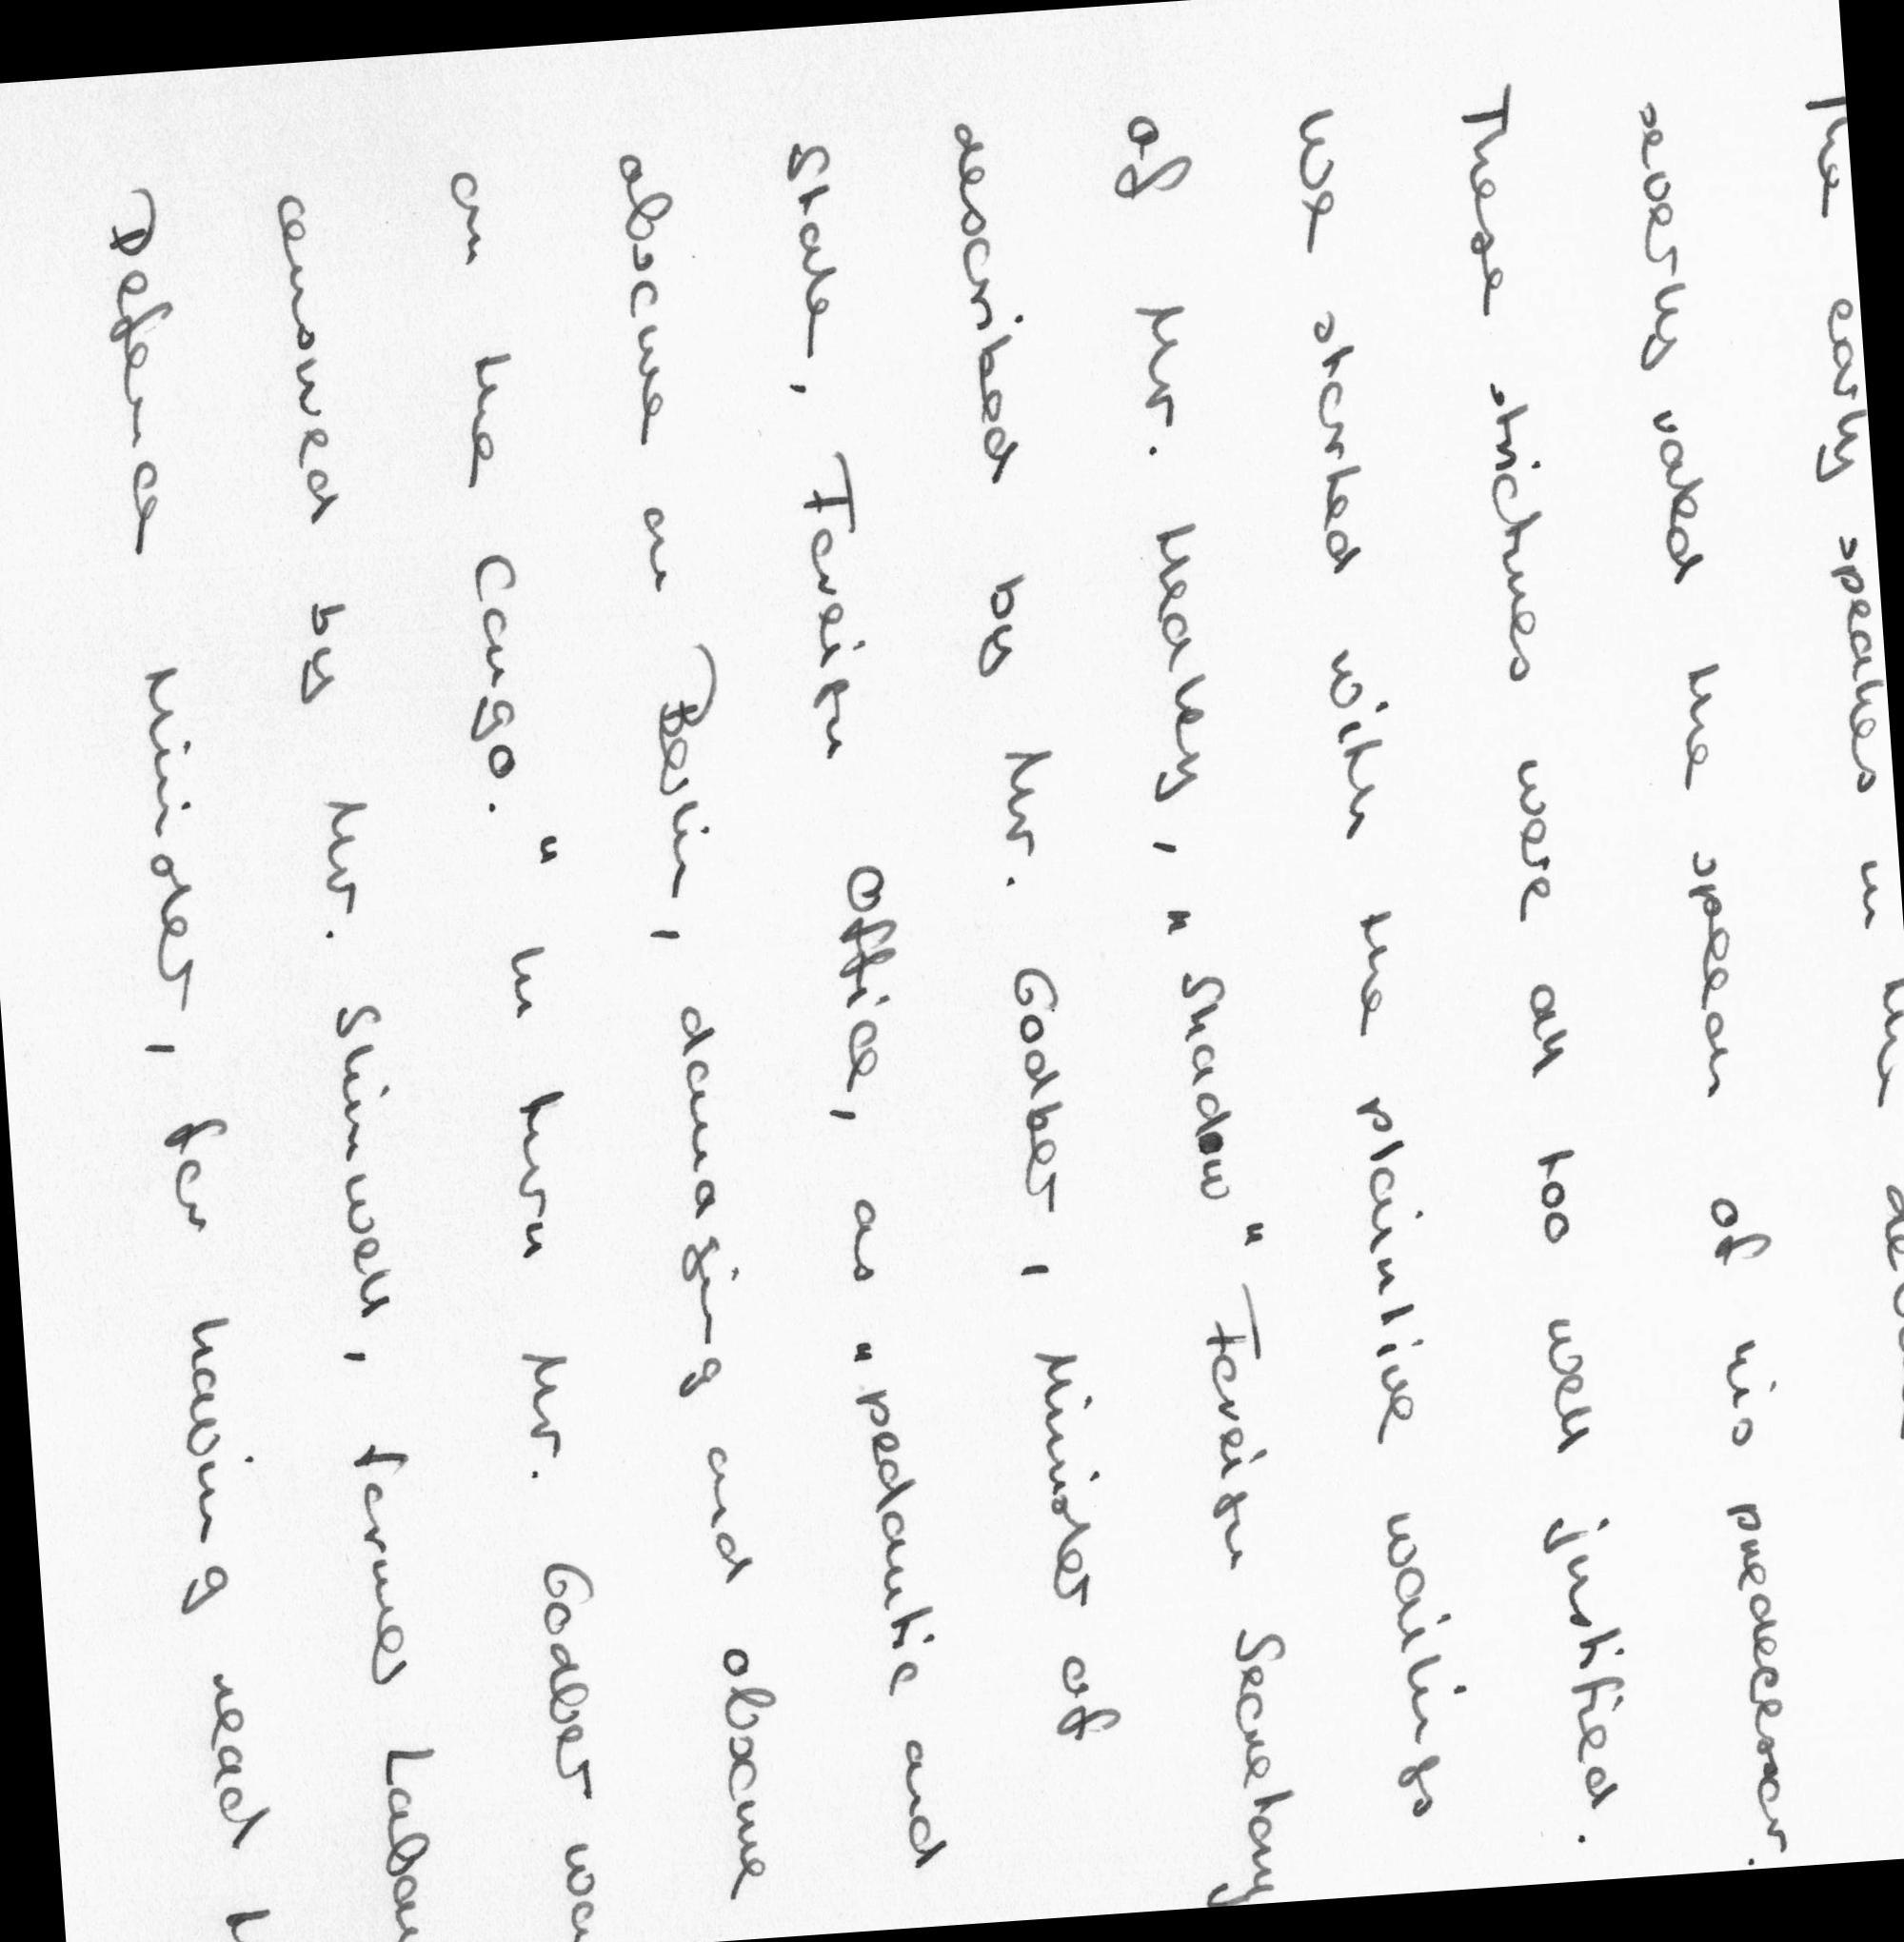 The early speakes in the
severly rated the speech of his predecessor.
These strictures were all too well justified.
We started with the plaintive wailings
of Mr. Healey, "Shadow" Foreign Secretary
described by Mr. Godber, Minister of
State, Foreign Office, as "pedantic and
obscure on Berlin, damaging and obscure
on the Congo." In turn Mr. Godber was
censured by Mr. Shinwell, former Labour
Defence Minister, for having read